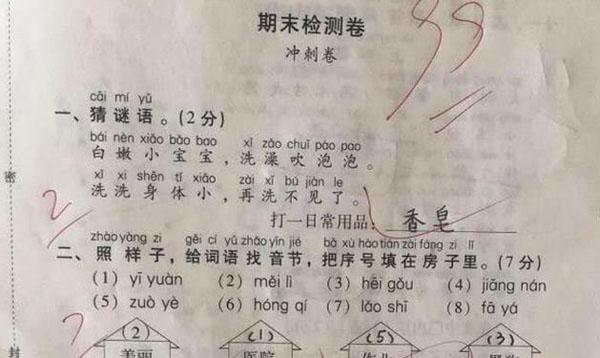 期末检测卷
99
冲刺卷
cāi mí yǔ
一、猜谜语。(2分)
bái nèn xiǎo bǎo bao xǐ zǎo chuī pào pao
白嫩小宝宝，洗澡吹泡泡。
xǐ xi shēn tǐ xiǎo zài xǐ bú jiàn le
洗洗身体小，再洗不见了。
2
打一日常用品：香皂
zhào yàng zi gěi cí yǔ zhǎo yīn jié bǎ xù hào tián zài fáng zi lǐ
二、照样子，给词语找音节，把序号填在房子里。(7分)
(1) yī yuàn (2) měi lì (3) hēi gǒu (4) jiāng nán
(5) zuò yè (6) hóng qí (7) lǎo shī (8) fā yá
(2) (1) (5) (3)
美丽 医院 作业
密
封